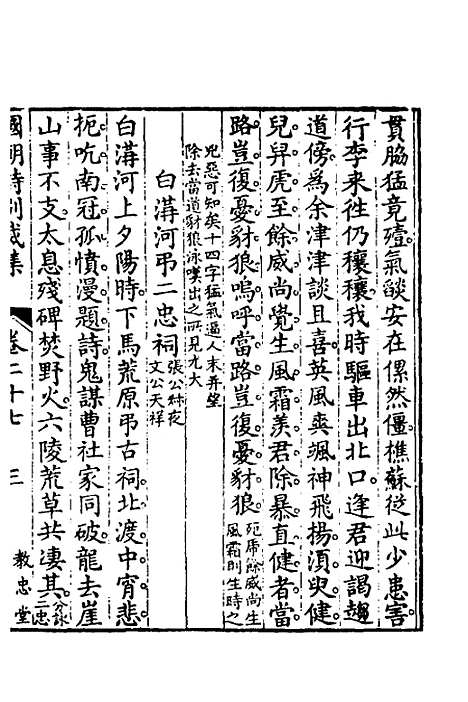 貫脇猛竟殪氣燄安在傫然僵樵蘇從此少患害
行李来徃仍穰穰我時驅車出北口逢君迎謁趨
道傍為余津津談且喜英風爽颯神飛揚須臾健
兒舁虎至餘威尚覺生風霜羡君除暴直健者當
路豈復憂豺狼嗚呼當路豈復憂豺狼死虎餘威尚生
風霜則生時之
兇惡可知矣十四字猛氣逼人末并望
除去當道豺狼泳嘆出之所見尤大
白溝河弔二忠祠張公叔夜
文公天祥
白溝河上夕陽時下馬荒原弔古祠北渡中宵悲
扼吭南冠孤憤漫題詩鬼謀曹社家同破龍去崖
山事不支太息殘碑焚野火六陵荒草共淒其分詠
二忠
國朝詩別裁集 卷二十七 三 教忠堂